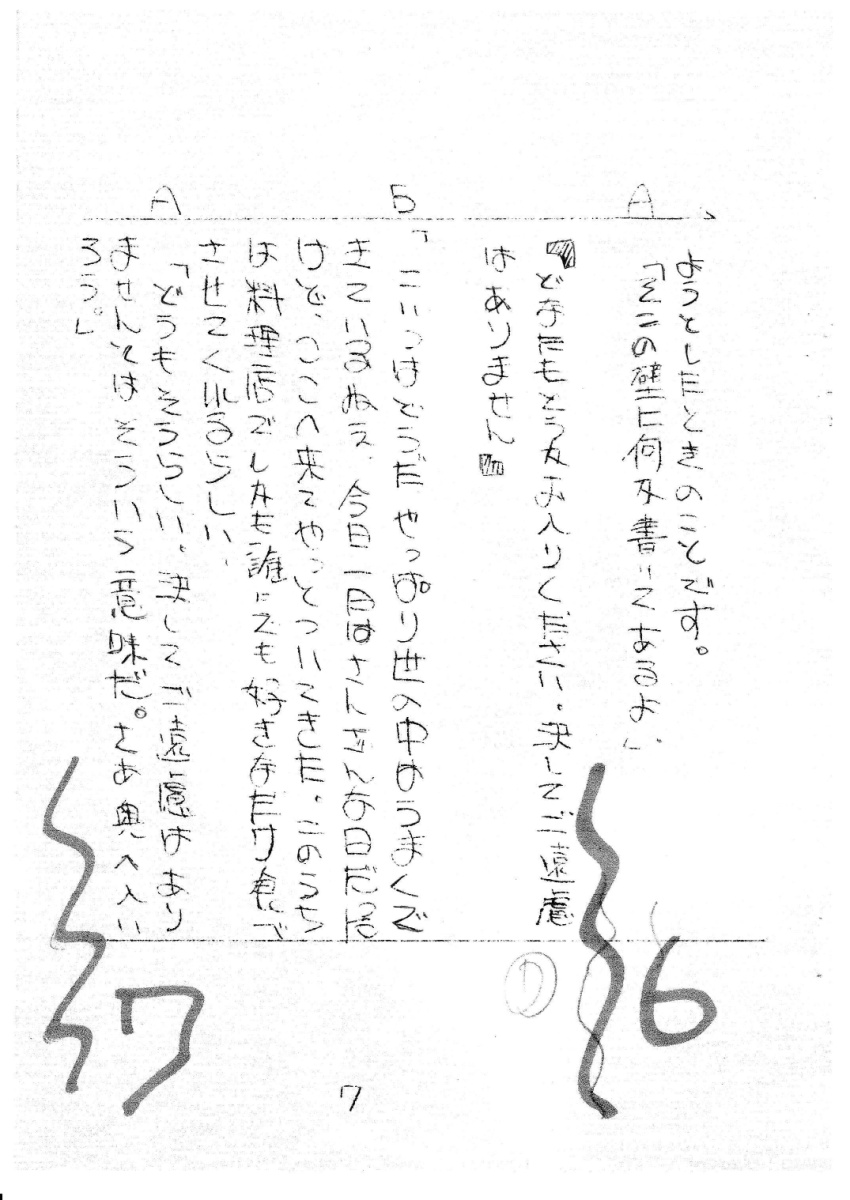 ようとしたときのことです。
A
「そこの壁に何か書いてあるよ」
『どなたもどうかお入りください。決してご遠慮
はありません』
B
「こいつはどうだ、やっぱり世の中はうまくで
きているねえ、今日一日はさんざんな日だった
けど、ここへ来てやっとついてきた。このうち
は料理店でしかも誰にでも好きなだけ食べ
させてくれるらしい、
A
「どうもそうらしい。決してご遠慮はあり
ませんとはそういう意味だ。さあ奥へ入い
ろう。」
6
①
7
7